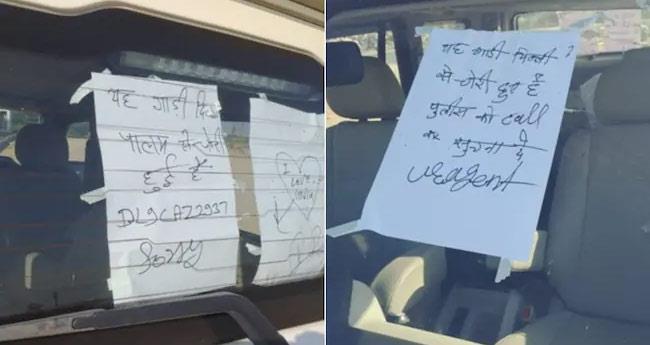 यह गाड़ी दिल्ली
पालम से चोरी
हुई है
DL9CAZ2937
Sorry
I
Love
India
यह गाड़ी दिल्ली
से चोरी हुई है
पुलीस को call
कर सुचना दे
uragent